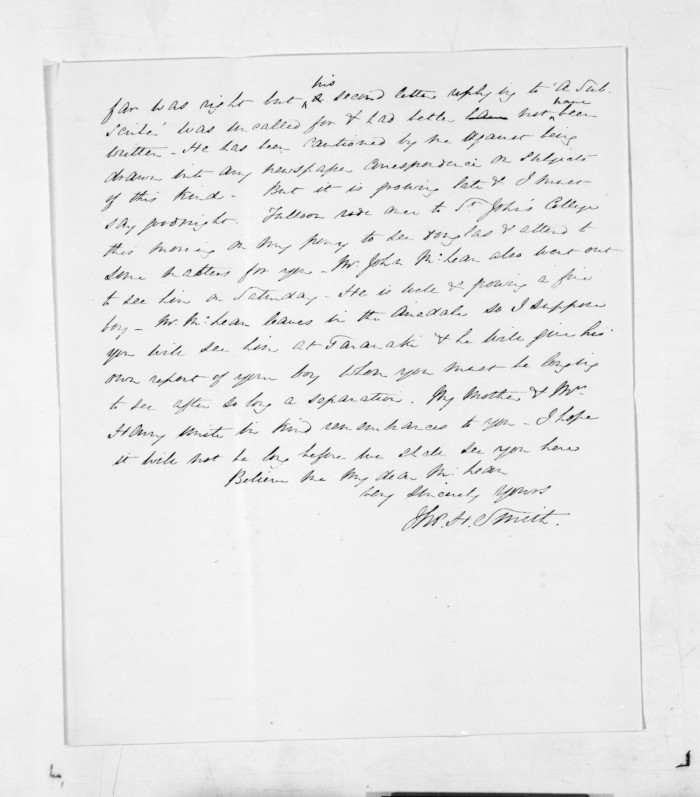 far was right but his second letter replying to "A Sub-
scriber" was uncalled for & had better not have been
written - He has been cautioned by me against being
drawn into any newspaper correspondence on subjects
of this kind - But it is growing late & I must
say goodnight. Fulloon rode over to St John's College
this morning on my pony to see Douglas & attend to
some matters for you - Mr. John McLean also went out
to see him on Saturday - He is well & growing a fine
boy - Mr. McLean leaves in the Airedale so I suppose
you will see him at Taranaki & he will give his
own report of your boy whom you must be longing
to see after so long a separation. My Mother & Mrs
Henry unite in kind remembrances to you - I hope
it will not be long before we shall see you here
Believe me My dear McLean
Very Sincerely yours
Jno. H. Smith.